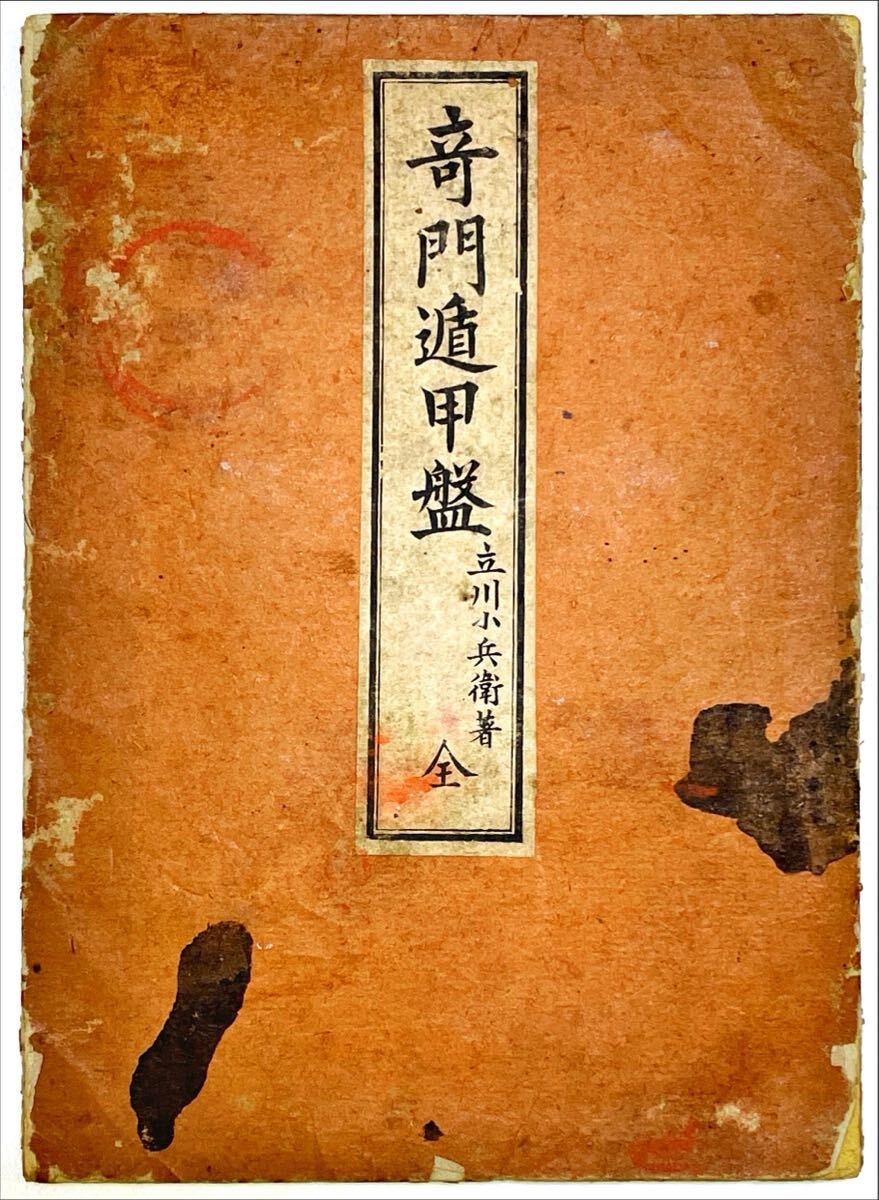 竒門遁甲盤
立川小兵衛著
全